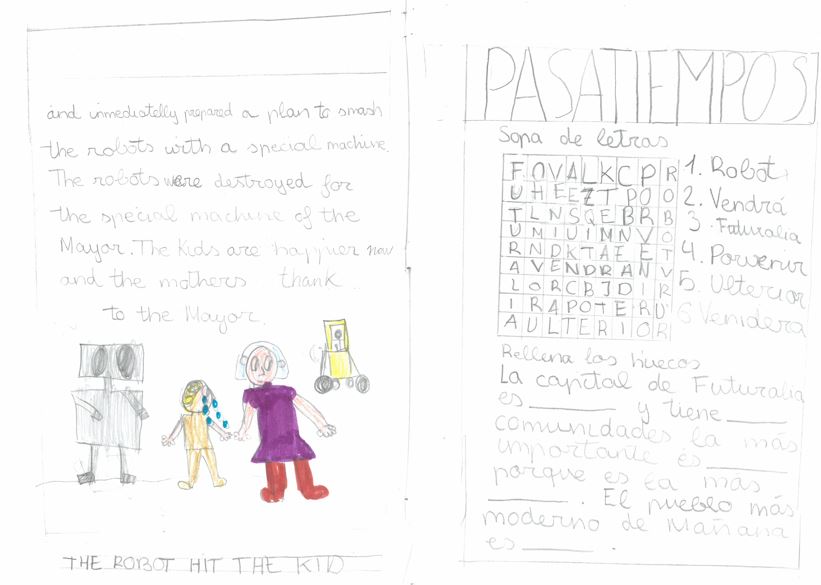 and inmediatelly prepared a plan to smash
the robots with a special machine.
The robots were destroyed for
the special machine of the
Mayor. The kids are happier now
and the mothers thank
to the Mayor.
THE ROBOT HIT THE KID
PASATIEMPOS
Sopa de letras
F O V A L K C P R
U H E E Z T P O O
T L N S Q E B R B
U M I U I M N V O
R N D K T A E E T
A V E N D R A N V
L O R C B J D I R
I R A P O T E R U
A U L T E R I O R
1. Robot
2. Vendrá
3. Futuralia
4. Porvenir
5. Ulterior
6. Venidera
Rellena los huecos
La capital de Futuralia
es ________ y tiene ______
comunidades la más
importante es ________
porque es la más
________. El pueblo más
moderno de Mañana
es _______.